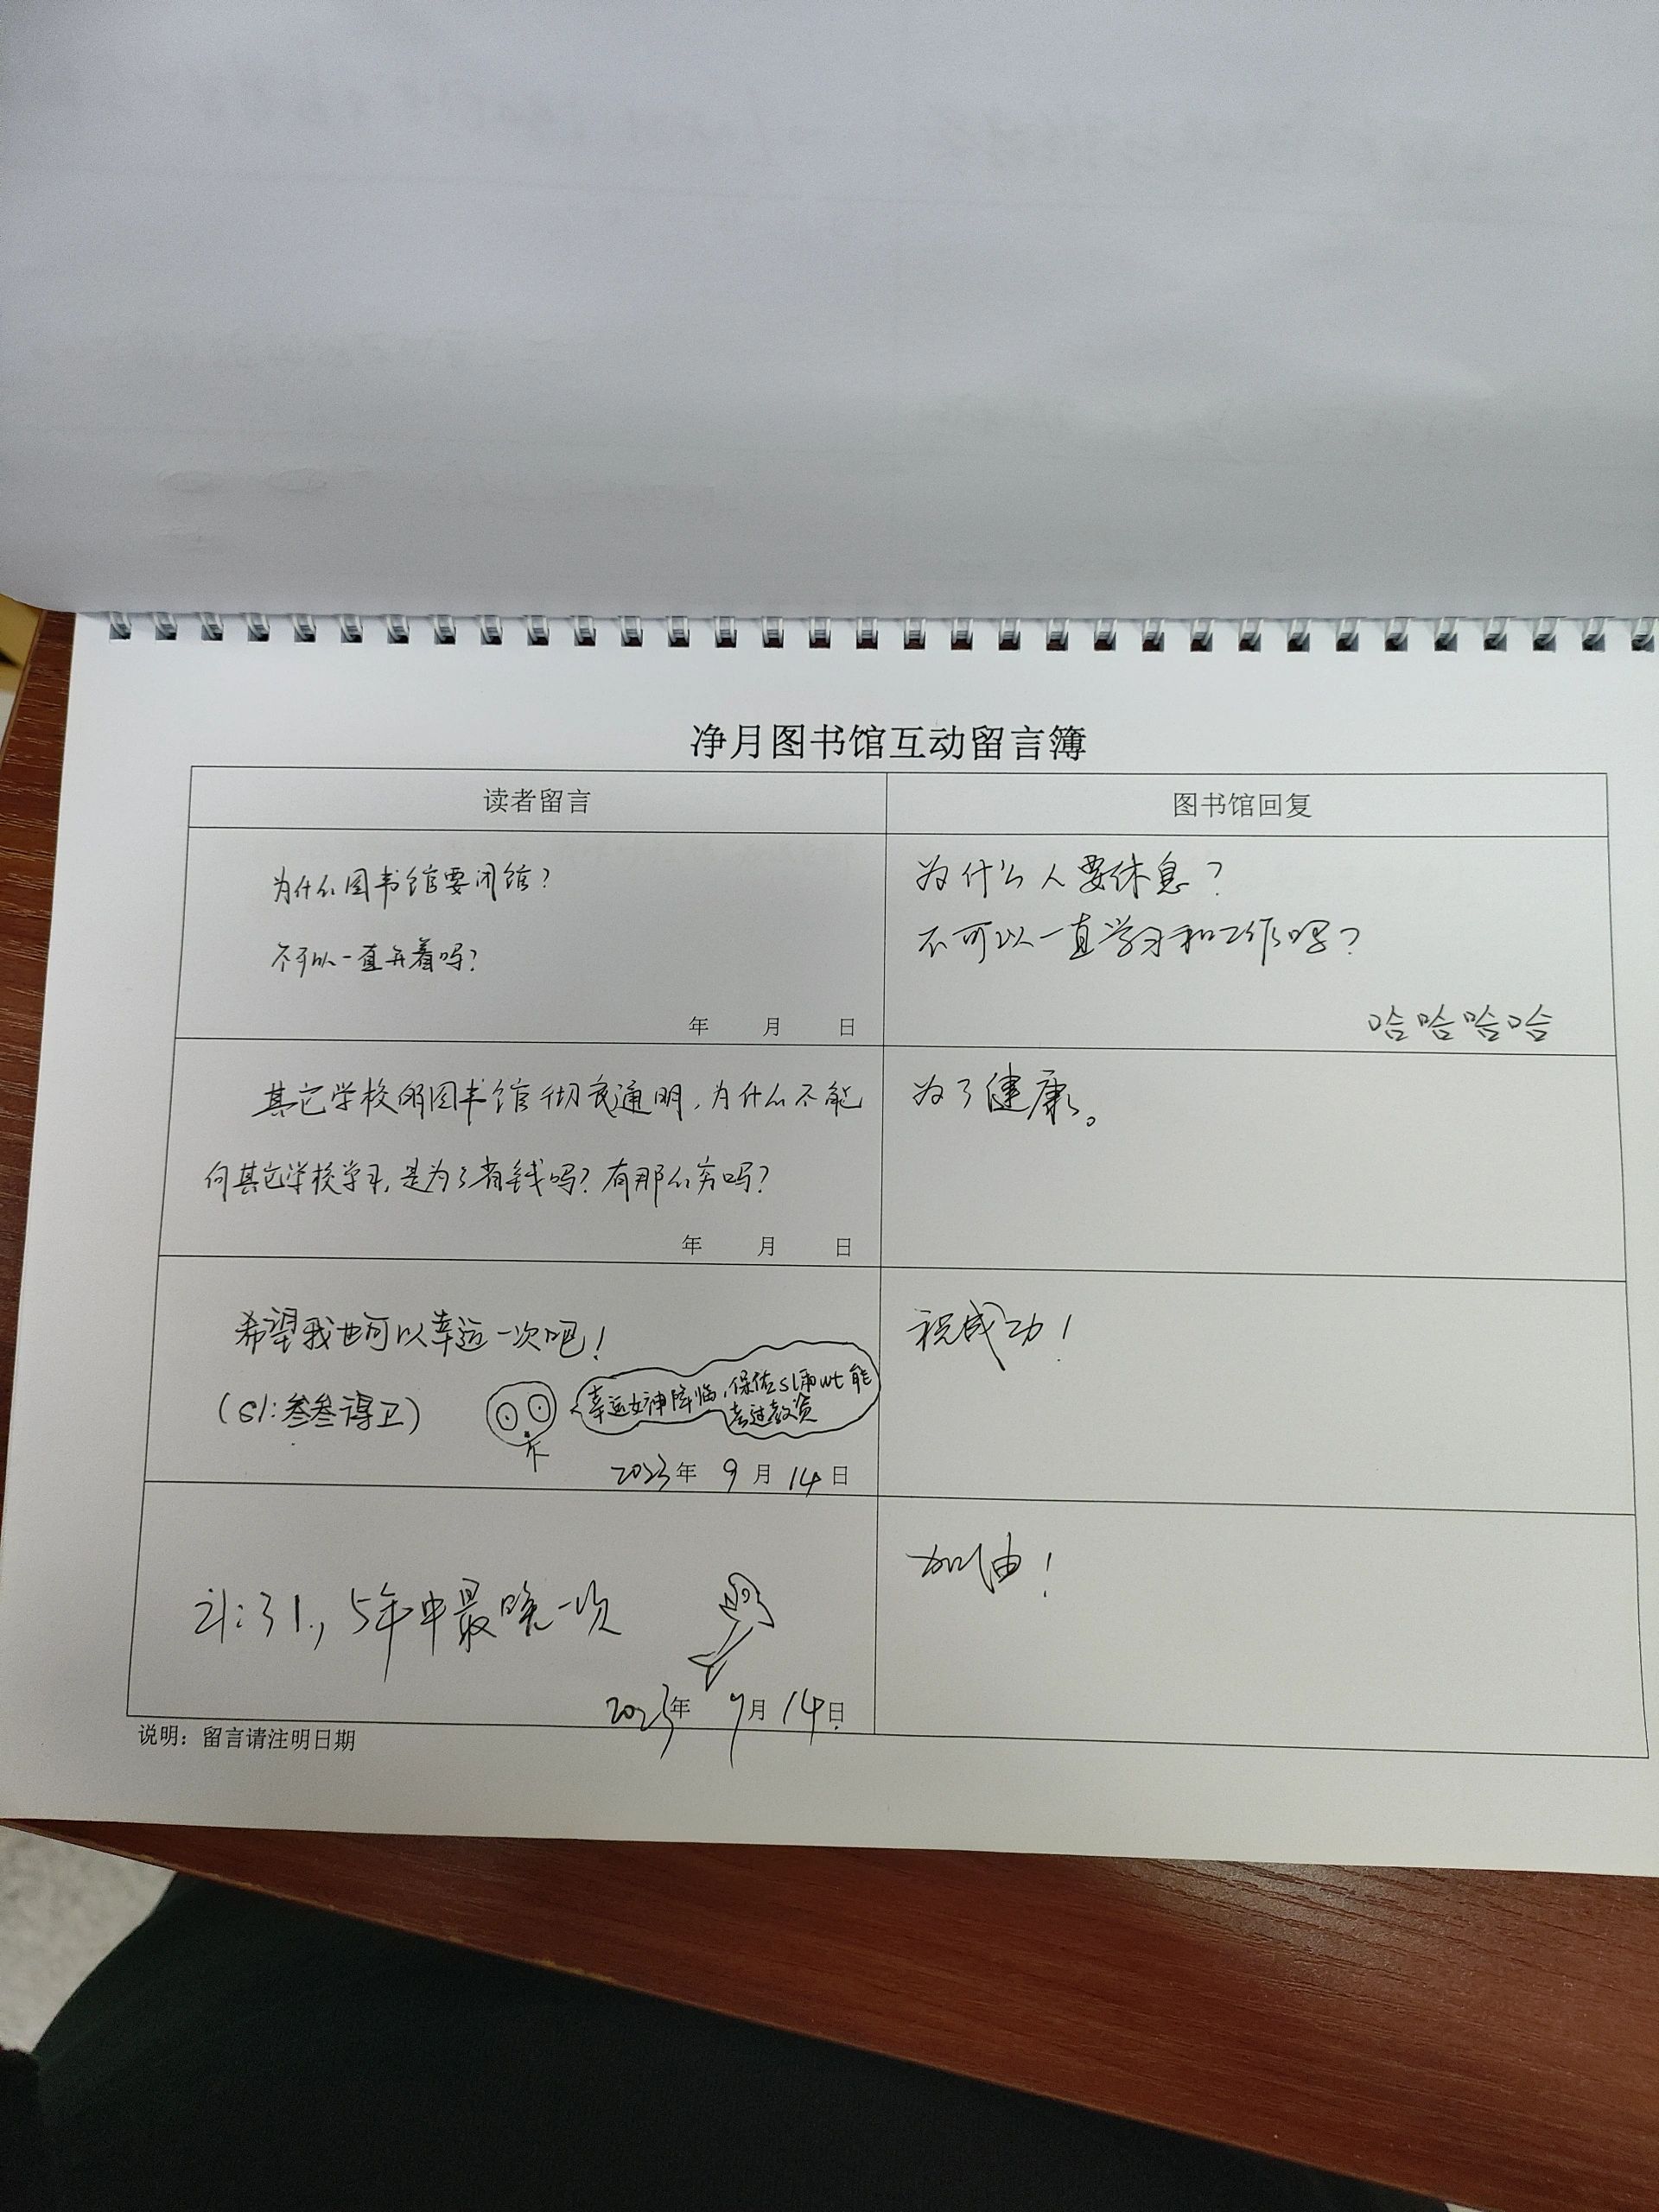 净月图书馆互动留言簿
读者留言
图书馆回复
为什么图书馆要闭馆？
不可以一直开着吗？
年 月 日
为什么人要休息？
不可以一直学习和工作吗？
哈哈哈哈
其它学校的图书馆彻夜通明，为什么不能
向其它学校学习，是为了省钱吗？有那么穷吗？
年 月 日
为了健康。
希望我也可以幸运一次吧！
(sl:叁叁得卫)
幸运女神降临，保佑sl和wt能
考过教资
2023年 9月 14日
祝成功！
21:31，5年中最晚一次
2023年 9月 14日
加油！
说明：留言请注明日期